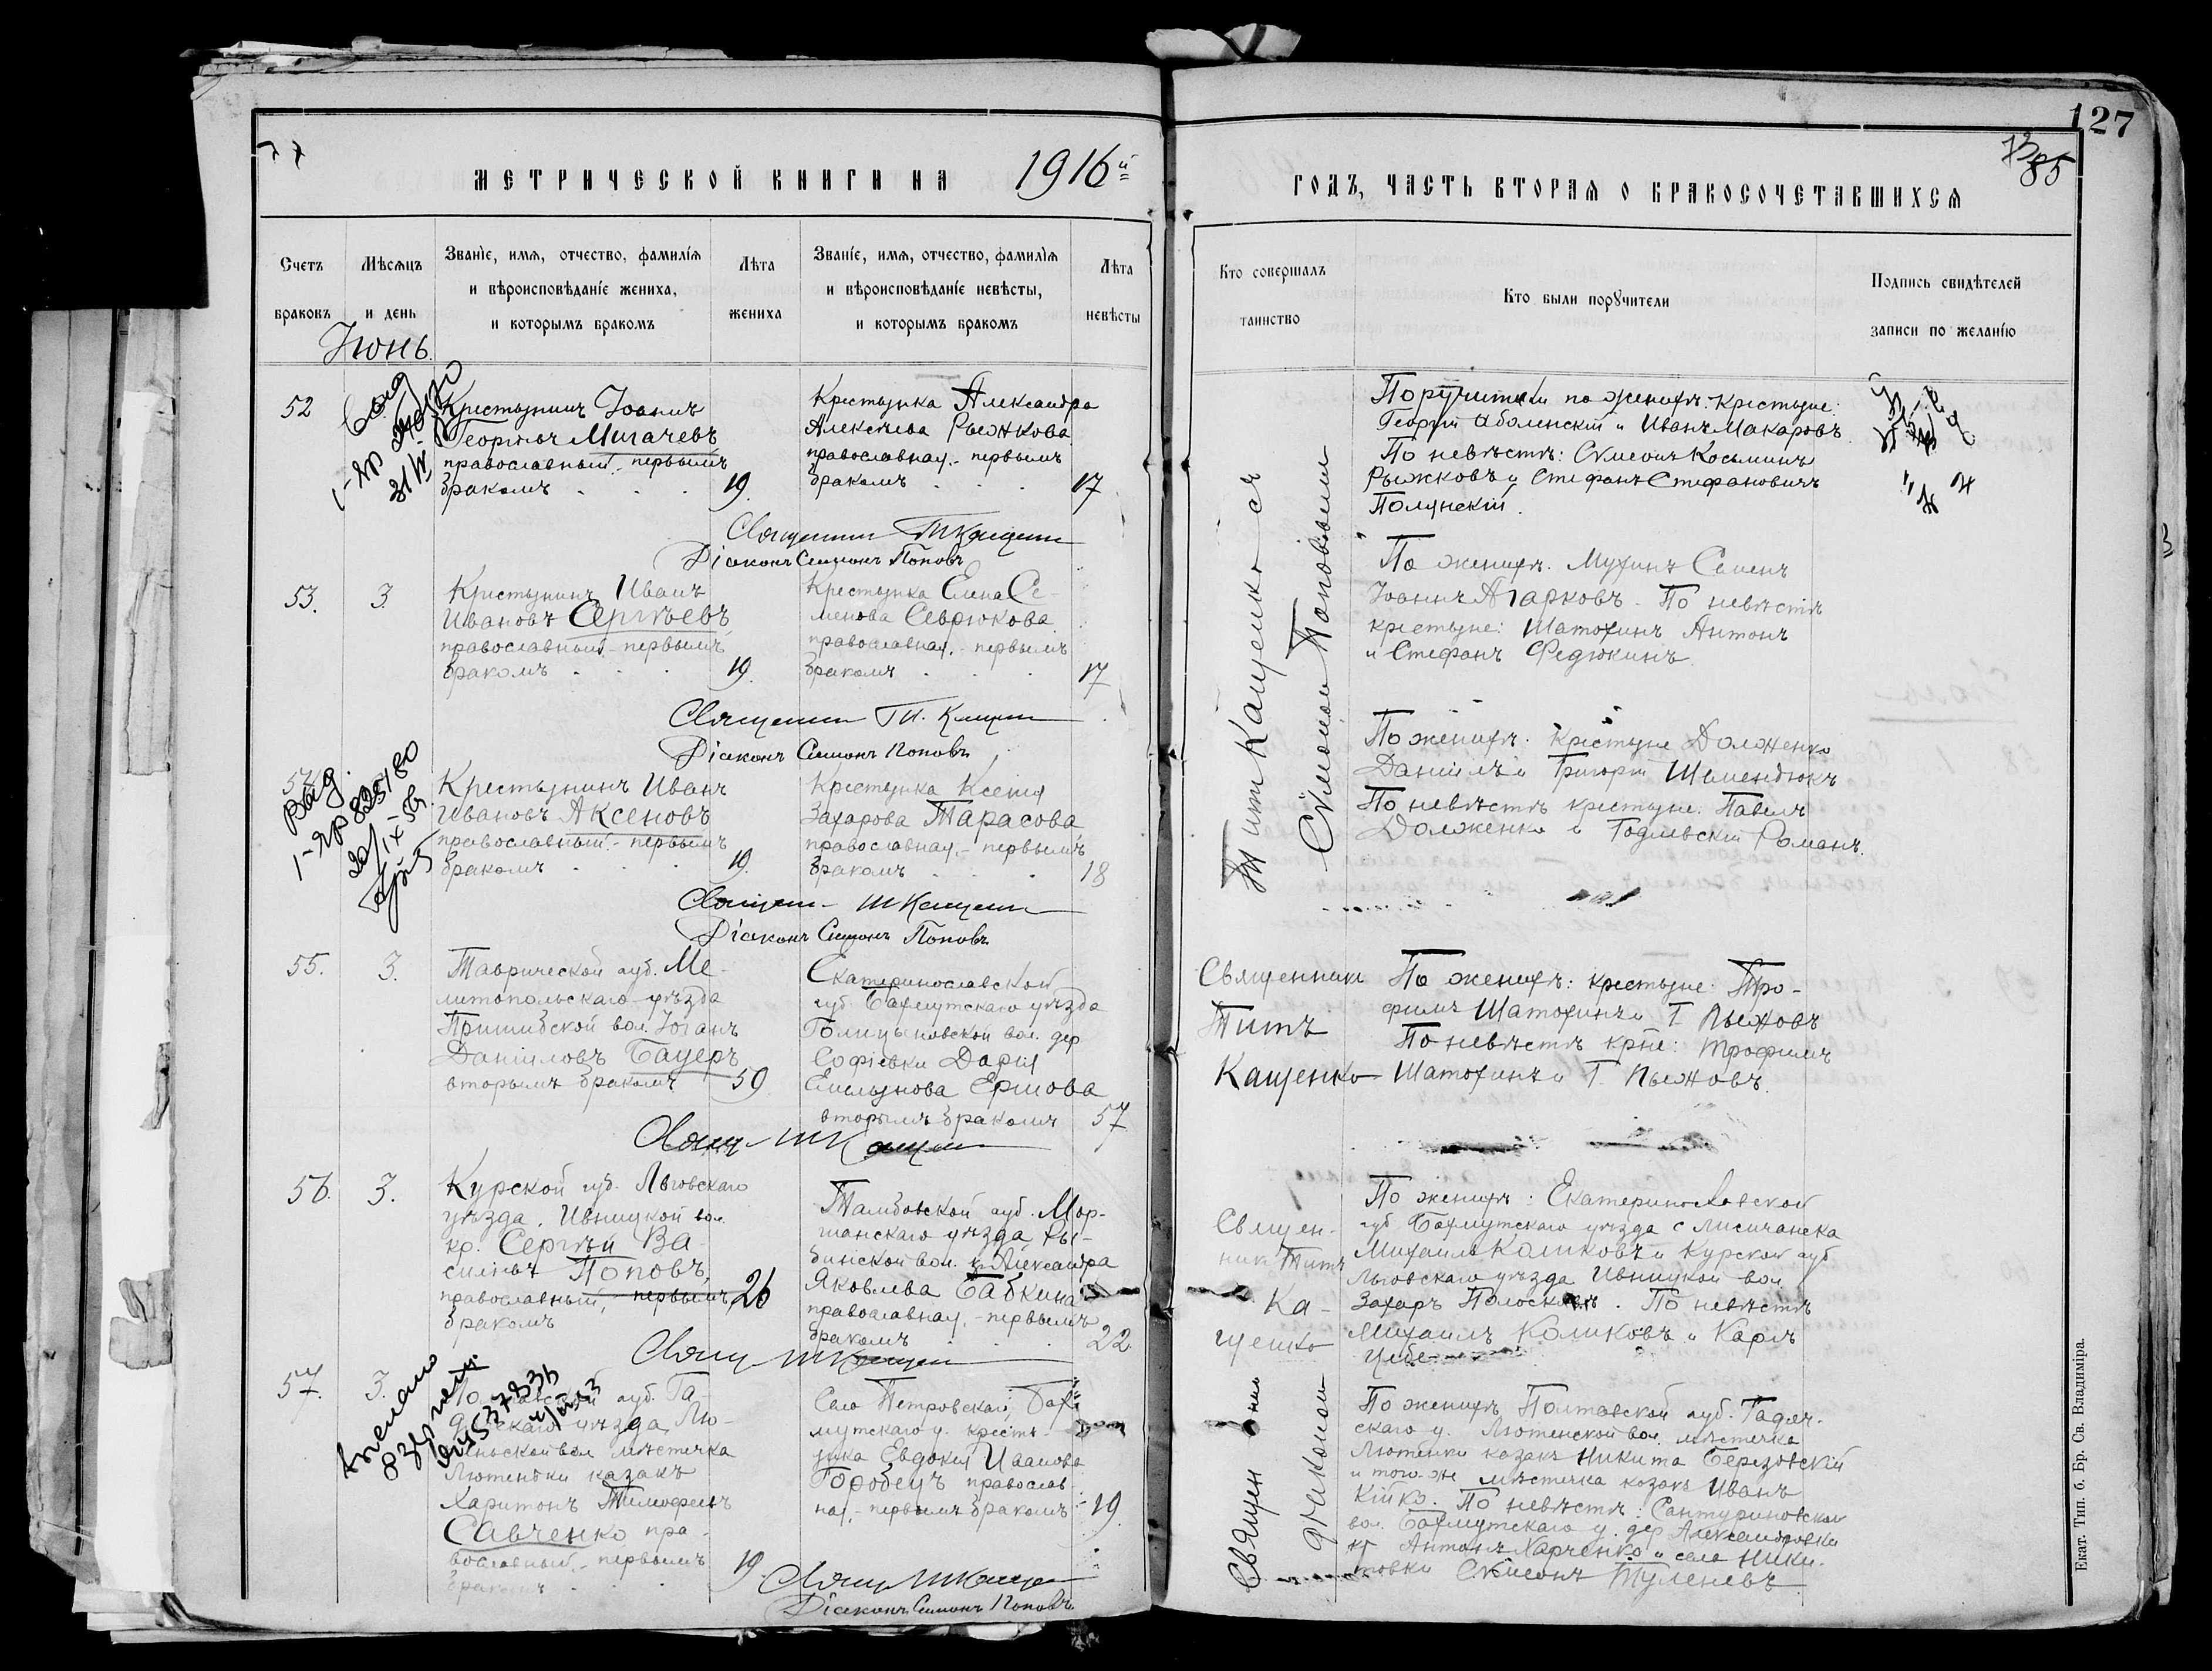 127
85
МЕТРИЧЕСКОЙ КНИГИ НА 1916й
ГОДЪ, ЧАСТЬ ВТОРАЯ О БРАКОСОЧЕТАВШИХСЯ
Счетъ браковъ
Мѣсяцъ и день
Званіе, имя, отчество, фамилія
и вѣроисповѣданіе жениха,
и которымъ бракомъ
Лѣта жениха
Званіе, имя, отчество, фамилія
и вѣроисповѣданіе невѣсты,
и которымъ бракомъ
Лѣта невѣсты
Кто совершалъ
таинство
Кто были порꙋчители
Подпись свидѣтелей
записи по желанію
Іюнь.
52
Крестьянинъ Іоаннъ
Георгіевъ Мигачевъ
православный, первымъ
бракомъ
19.
Крестьянка Александра
Алексѣева Рыжкова
православная, первымъ
бракомъ
17
Діаконъ Симонъ Поповъ
Поручители по женихѣ: крестьяне:
Георгій Оболенскій и Иванъ Макаровъ
По невѣстѣ: Сѵмеонъ Косьминъ
Рыжковъ и Стефанъ Стефановичъ
Полунскій.
Титъ Кащенко съ
Поповымъ
53.
3
Крестьянинъ Иванъ
Ивановъ Сергѣевъ
православный, первымъ
бракомъ
19.
Крестьянка Елена Се-
менова Севрюкова
православная, первымъ
бракомъ
17
Діаконъ Симонъ Поповъ
По женихѣ: Мухинъ Семенъ
Іоаннъ Агарковъ. По невѣстѣ
крестьяне: Шатохинъ Антонъ
и Стефанъ Федюкинъ.
Крестьянинъ Иванъ
Ивановъ Аксеновъ
православный, первымъ
бракомъ
19.
Крестьянка Ксенія
Захарова Тарасова
православная, первымъ
бракомъ
18
Діаконъ Симонъ Поповъ
По женихѣ: крестьяне Долженко
Даніилъ и Григорій Шемендюкъ
По невѣстѣ крестьяне: Павелъ
Долженко и Годлевскій Романъ.
55.
3.
Таврической губ. Ме-
литопольскаго уѣзда
Пришибской вол. Іоганъ
Даніиловъ Бауеръ
вторымъ бракомъ
59
Екатеринославской
губ. Бахмутскаго уѣзда
Голицыновской вол. дер
Софіевки Дарія
Емельянова Ершова
вторымъ бракомъ
57
Священникъ
Титъ
Кащенко
По женихѣ: крестьяне: Тро-
фимъ Шатохинъ и Г. Рыжовъ
По невѣстѣ кр-не: Трофимъ
Шатохинъ и Г. Рыжовъ.
56.
3.
Курской губ. Льговскаго
уѣзда, Ивницкой вол.
кр. Сергѣй Ва-
сильевъ Поповъ,
православный, первымъ
бракомъ
26
Тамбовской губ. Мор-
шанскаго уѣзда Ры-
бинской вол. кр. Александра
Яковлева Бабкина
православная, первымъ
бракомъ
22
Священ-
никъ Титъ
Ка-
щенко
По женихѣ: Екатеринославской
губ. Бахмутскаго уѣзда с. Лисичанска
Михаилъ Коликовъ и Курской губ
Льговскаго уѣзда Ивницкой вол
Захаръ Полосковъ. По невѣстѣ
Михаилъ Коликовъ и Карлъ
57.
3.
Полтавской губ. Га-
дячскаго уѣзда Лю-
теньской вол. мѣстечка
Лютеньки казакъ
Харитонъ Тимофеевъ
Савченко пра-
вославный, первымъ
бракомъ
19.
Село Петровское, Бах-
мутскаго у. кресть-
янка Евдокія Иванова
Горобецъ православ-
ная, первымъ бракомъ
19.
Діаконъ Симонъ Поповъ
По женихѣ Полтавской губ. Гадяч-
скаго у. Лютенской вол. мѣстечка
Лютеньки казакъ Никита Березовскій
и того-же мѣстечка казакъ Иванъ
Кійко. По невѣстѣ: Сантуриновской
вол. Бахмутскаго у. дер Александровки
кр Антонъ Харченко и села Ники-
товки Сѵмеонъ Туленевъ
Екат. Тип. б. Бр. Св. Владиміра.